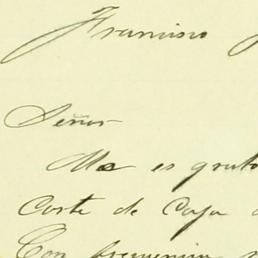 Francisco
Señor
Me es grato
Corte de Caja
Con frecuencia